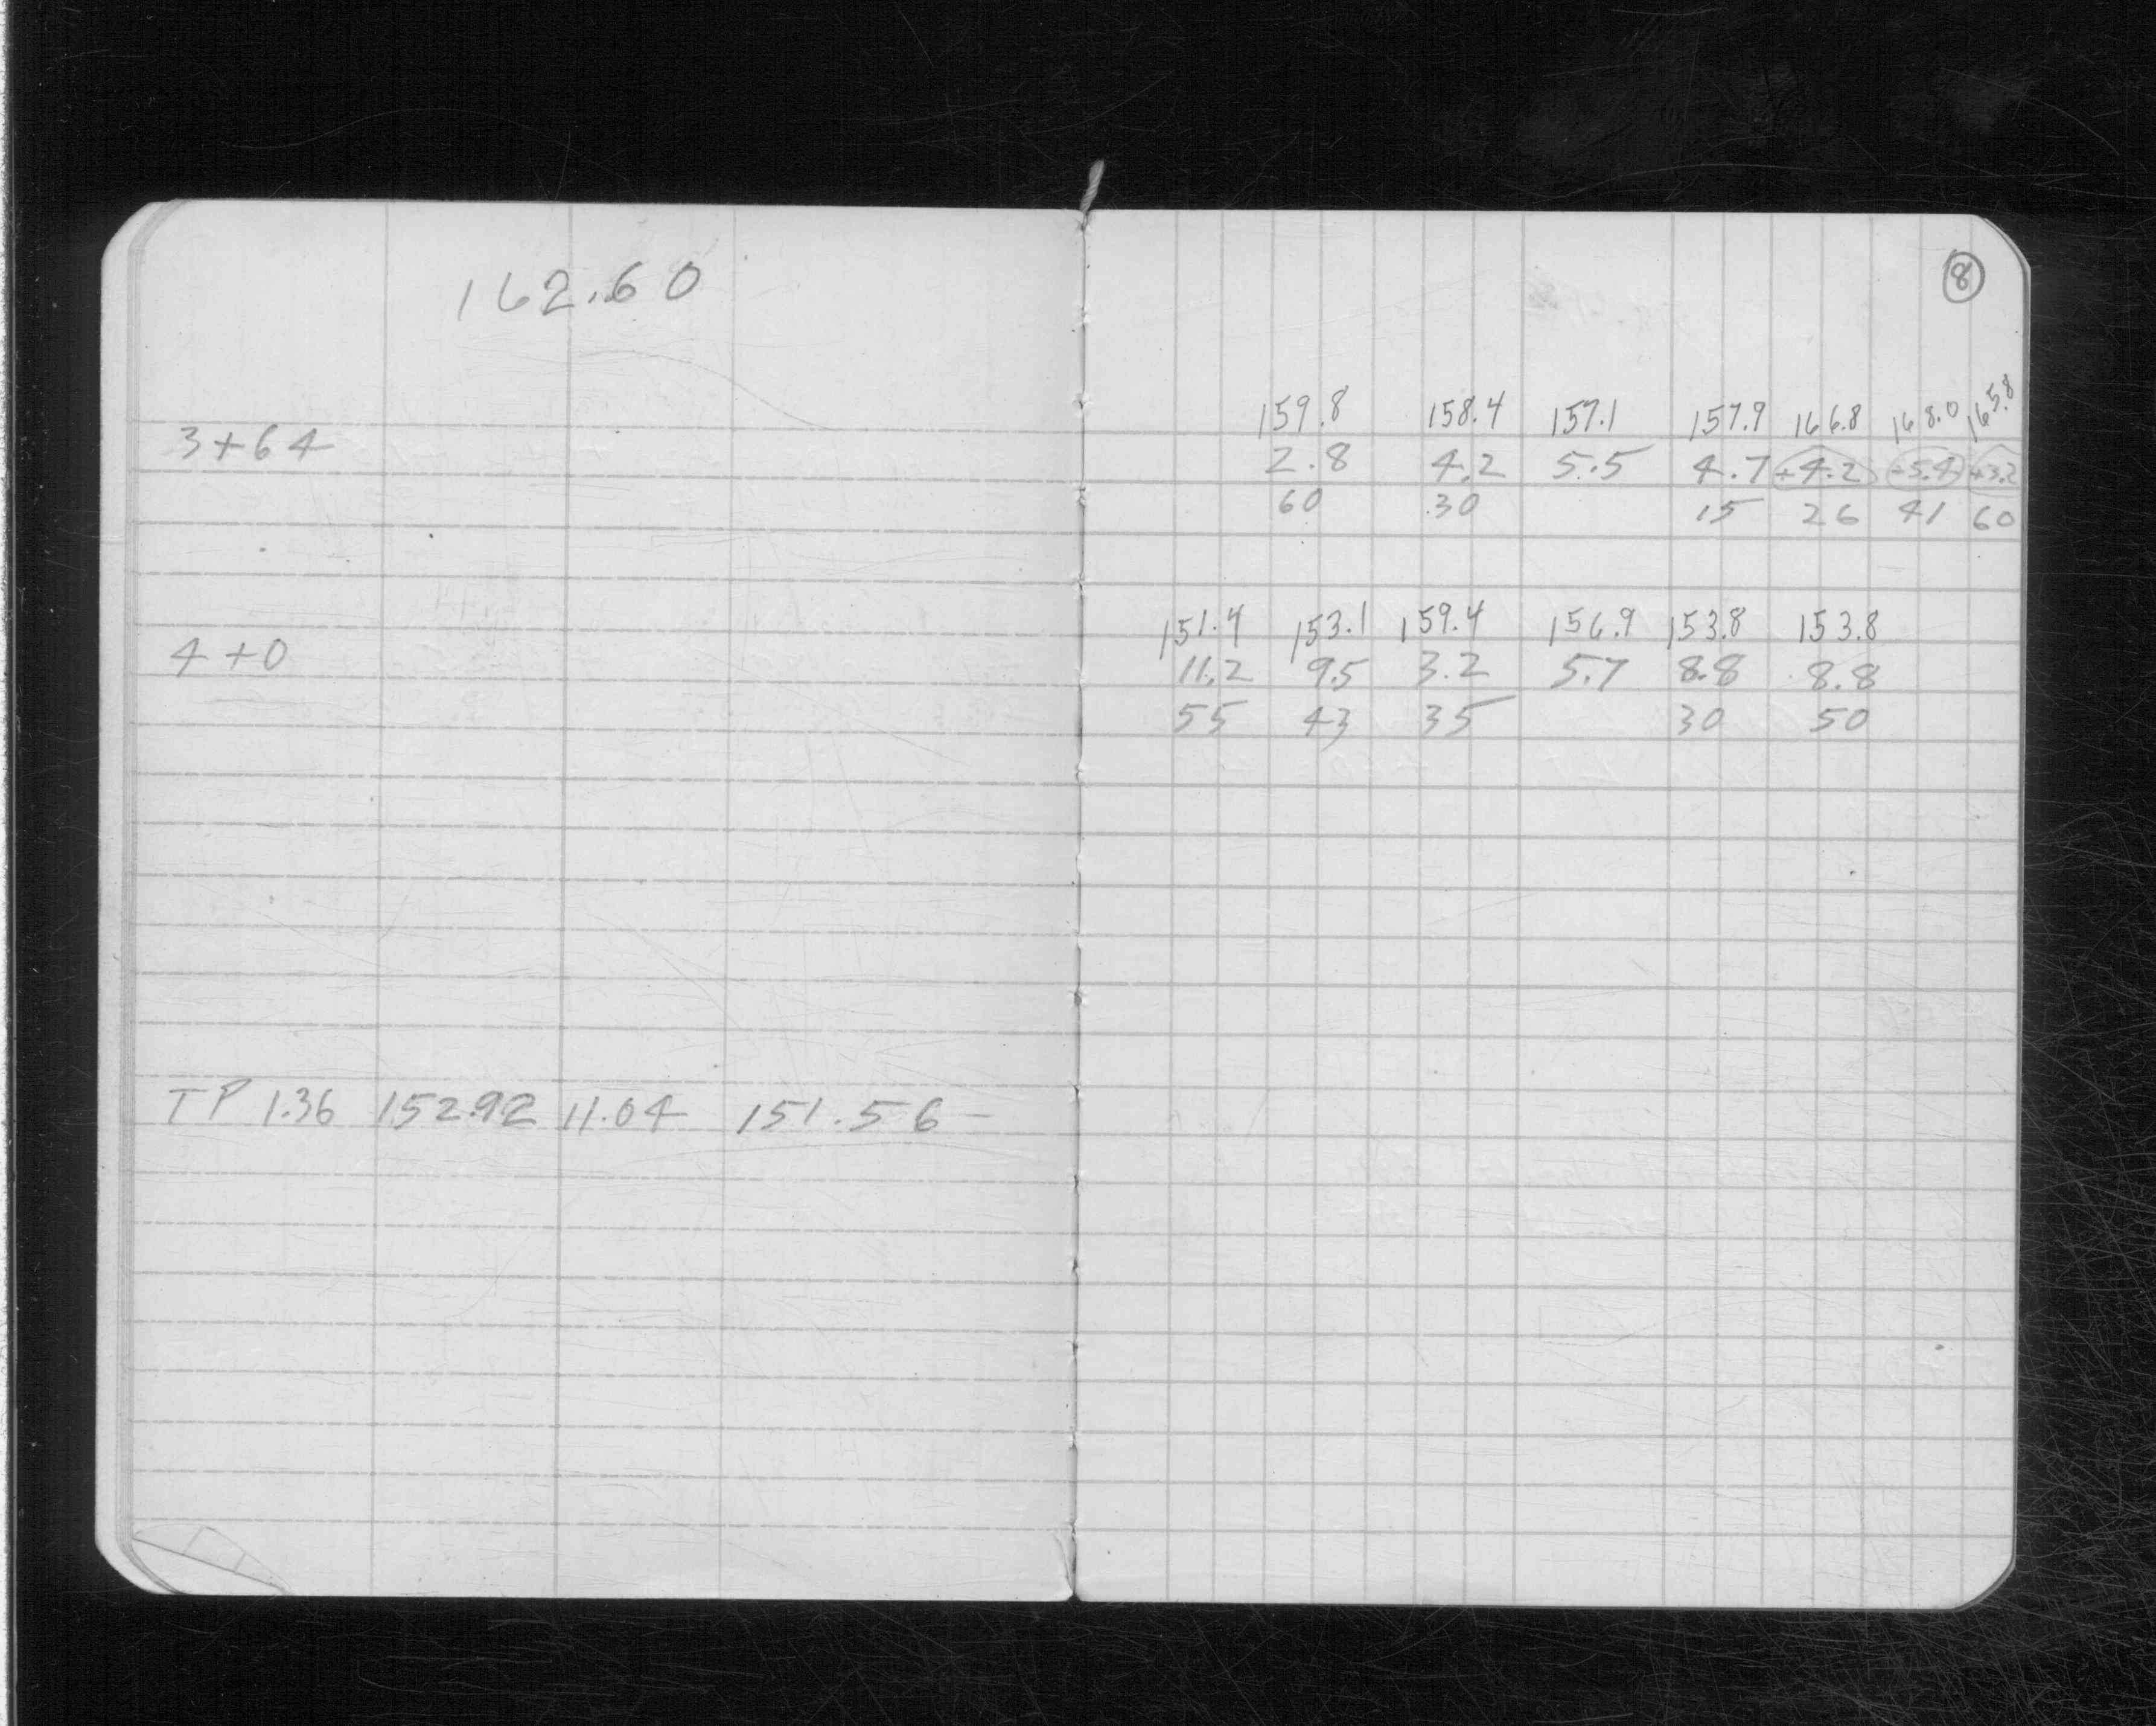 162.60
8
159.8 158.4 157.1 157.9 166.8 168.0 165.8
3+64 2.8 4.2 5.5 4.7 +4.2 +5.4 +3.2
60 30 15 26 41 60
151.4 153.1 159.4 156.9 153.8 153.8
4+0 11.2 9.5 3.2 5.7 8.8 8.8
55 43 35 30 50
TP 1.36 152.92 11.04 151.56 -